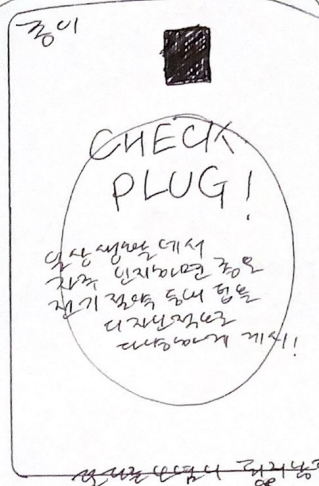 종이
CHECK
PLUG!
일상생활에서
자주 인지하면 좋을
전기 절약 등의 팁을
디자인적으로
다양하게 게시!